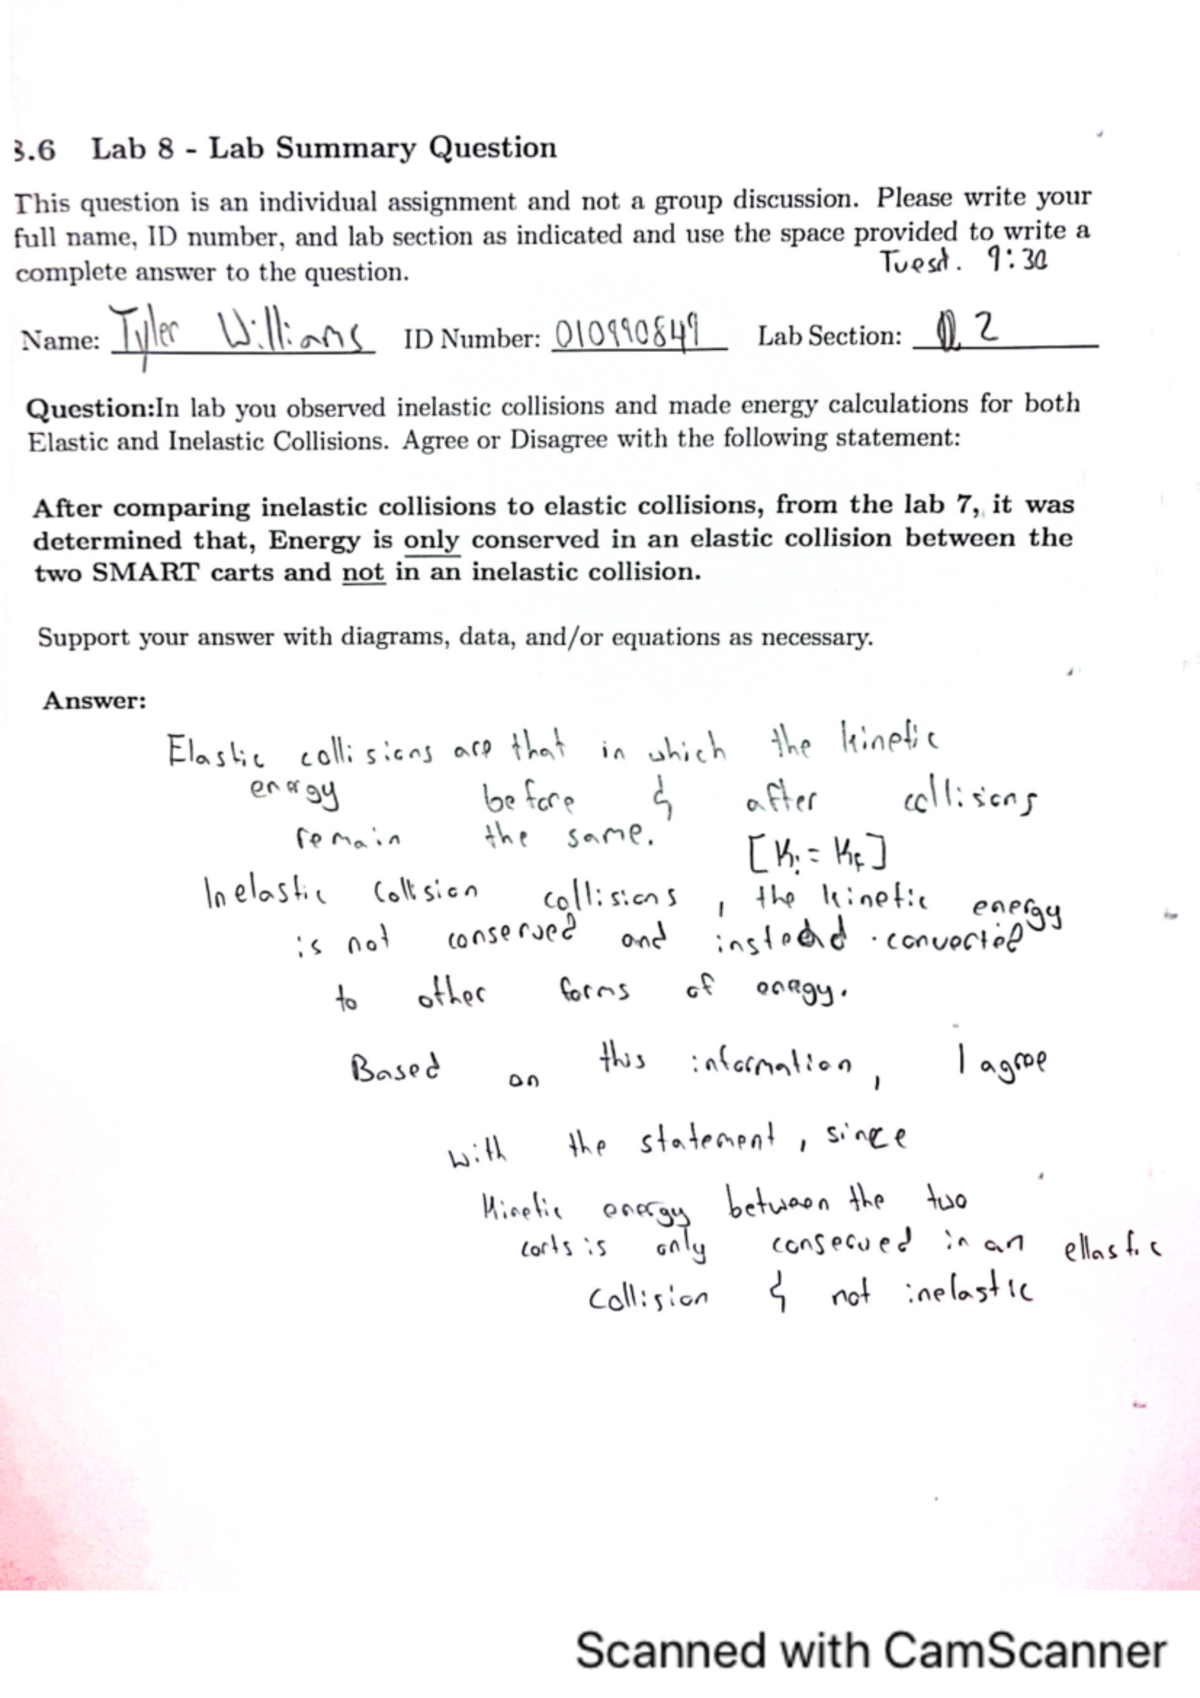 3.6 Lab 8 - Lab Summary Question
This question is an individual assignment and not a group discussion. Please write your
full name, ID number, and lab section as indicated and use the space provided to write a
complete answer to the question.
Tuesd. 9:30
Name: Tyler Williams ID Number: 010990849 Lab Section: 2
Question:In lab you observed inelastic collisions and made energy calculations for both
Elastic and Inelastic Collisions. Agree or Disagree with the following statement:
After comparing inelastic collisions to elastic collisions, from the lab 7, it was
determined that, Energy is only conserved in an elastic collision between the
two SMART carts and not in an inelastic collision.
Support your answer with diagrams, data, and/or equations as necessary.
Answer:
Elastic collisions are that in which the kinetic
energy before & after collisions
remain the same. [Ki = Kf]
Inelastic Collsion collisions, the kinetic energy
is not conserved and instead converted
to other forms of enegy.
Based on this information, I agree
with the statement, since
Kinetic energy between the two
carts is only conserved in an ellastic
collision & not inelastic
Scanned with CamScanner